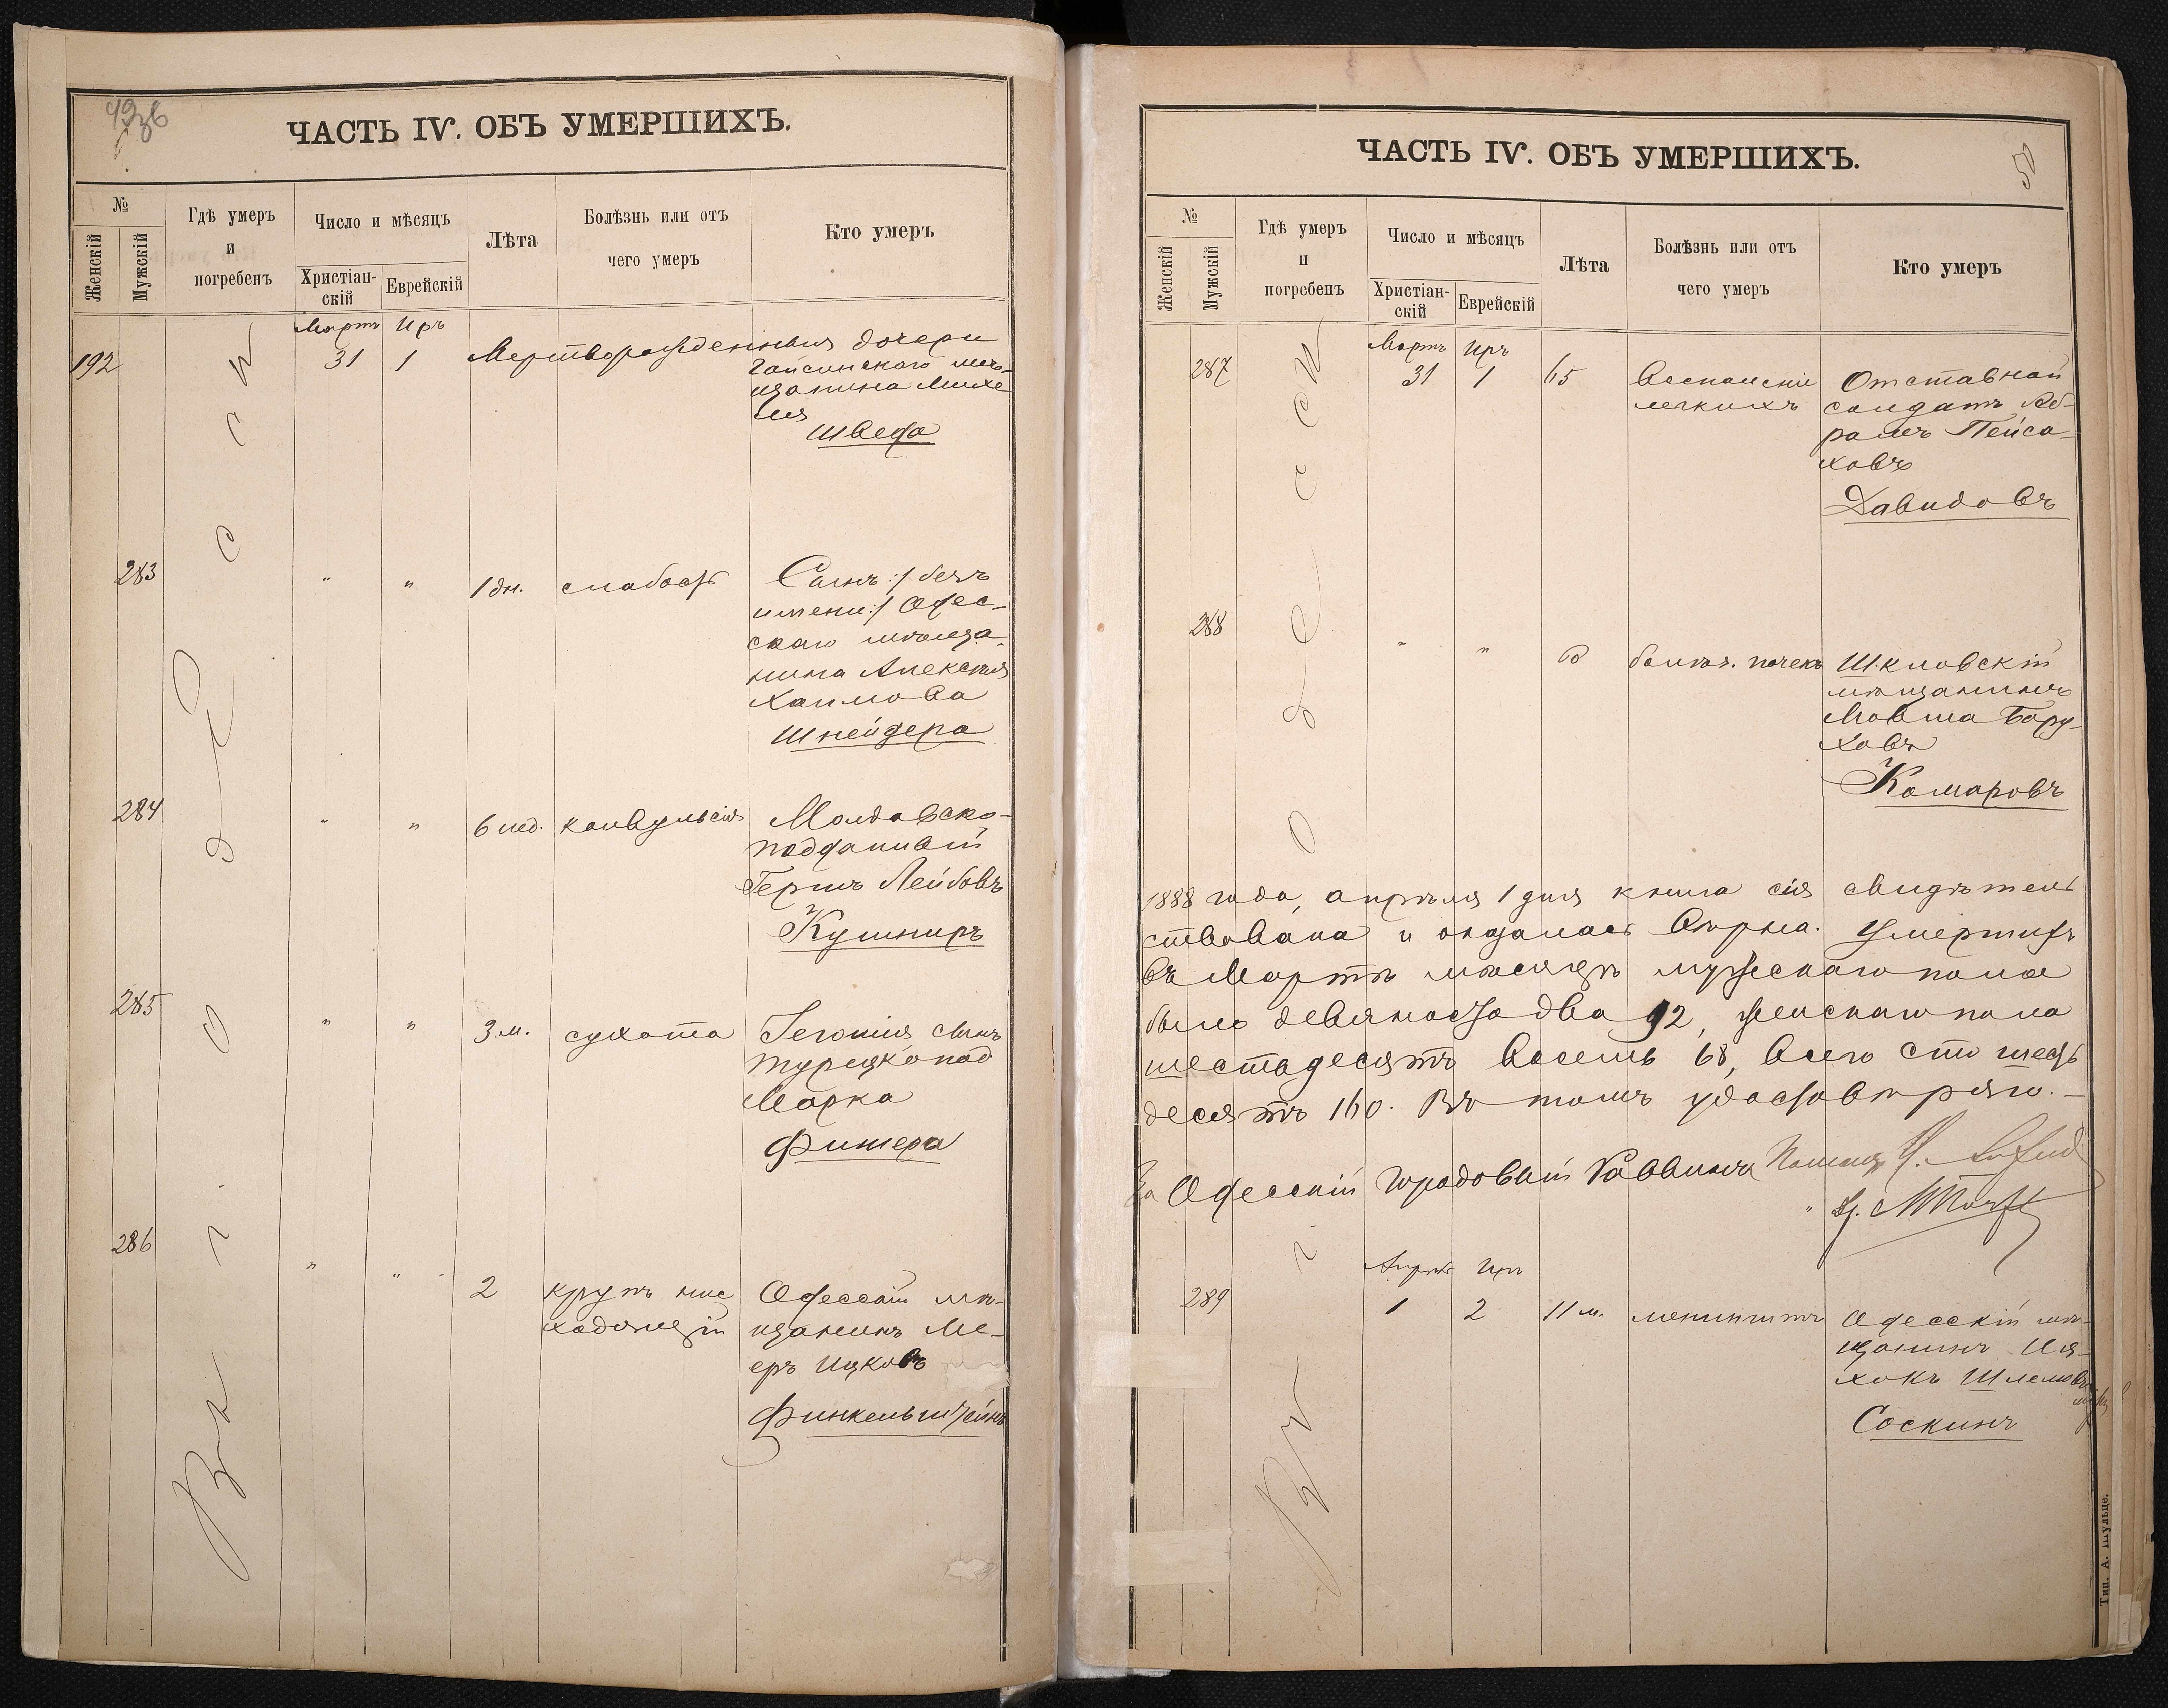 ЧАСТЬ IV. ОБЪ УМЕРШИХЪ.
№
Женскій
Мужскій
Гдѣ умеръ
и
погребенъ
Число и мѣсяцъ
Христіан-
скій
Еврейскій
Лѣта
Болѣзнь или отъ
чего умеръ
Кто умеръ
Въ г. Одессѣ
Мартъ Иръ
192 31 1 Мертворожденныя дочери
Гайсинскаго мѣ-
щанина Михе
ля
Шведа
283 " " 1 дн. слабость Сынъ :/ безъ
имени :/ Одес-
скаго мѣща-
нина Алексѣя
Хаимова
Шнейдера
284 " " 6 нед. конвульсія Молдавско-
подданный
Гершъ Лейбовъ
Кушниръ
285 " " 3 м. сухота сынъ
турецкопод
Марка
Фишера
286 " " 2 крупъ нис
ходящій
Одесскій мѣ-
щанинъ Ме-
еръ Ицковъ
Финкельштейнъ
ЧАСТЬ IV. ОБЪ УМЕРШИХЪ.
50
№
Женскій
Мужскій
Гдѣ умеръ
и
погребенъ
Число и мѣсяцъ
Христіан-
скій
Еврейскій
Лѣта
Болѣзнь или отъ
чего умеръ
Кто умеръ
Въ г. Одессѣ
Мартъ Иръ
287 31 1 65 Воспаленіе
легкихъ
Отставной
солдатъ Аб-
рамъ Пейса-
ховъ
Давидовъ
288 " " болѣз. почекъ Шкловскій
мѣщанинъ
Мовша Бору-
ховъ
Комаровъ
1888 года, апрѣля 1 дня книга сія свидѣтель
ствована и оказалась вѣрна. Умершихъ
въ Мартѣ мѣсяцѣ мужескаго пола
было девяносто два 92, женскаго пола
шестьдесятъ восемь 68, всего сто шесть
десятъ 160. Въ томъ удостовѣряю.-
За Одесскій Городовый Раввинъ Помощ.
Апрѣль Иръ
289 1 2 11 м. менингитъ Одесскій мѣ-
щанинъ
Шлемовъ
Соскинъ
Тип. А. Шульце.